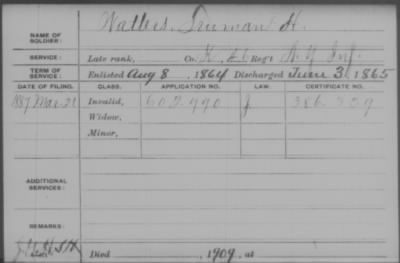 Walters, Truman H.
NAME OF SOLDIER:
SERVICE: Late rank, Co. K, Reg't N.Y. Inf.
TERM OF SERVICE: Enlisted Aug 8, 1864 Discharged June 3, 1865
DATE OF FILING. CLASS. APPLICATION NO. LAW. CERTIFICATE NO.
1887 Mar. 21 Invalid, 602.990 J 386.559
Widow,
Minor,
ADDITIONAL SERVICES:
REMARKS:
Died , 1909, at